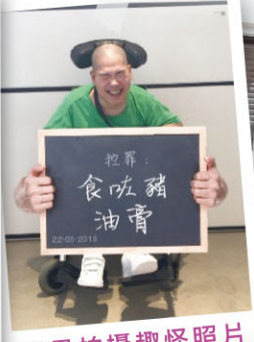 控罪：
食咗豬
油膏
22-09-2018
拍攝趣怪照片